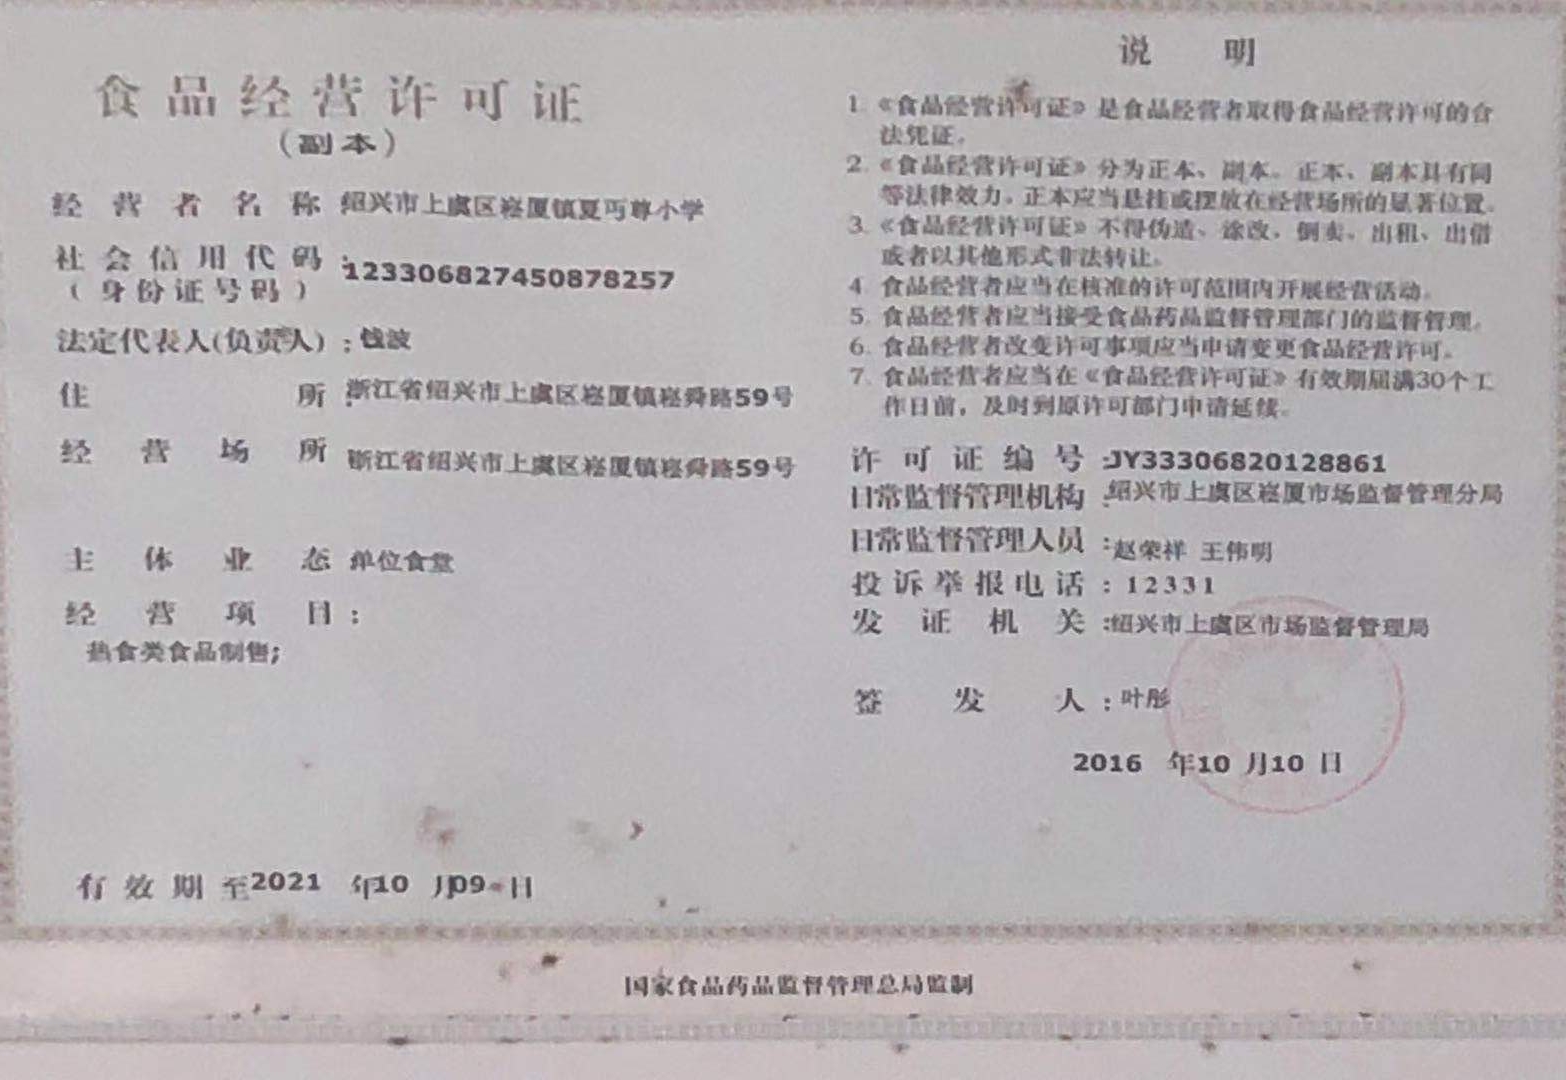 食品经营许可证
（副本）
经营者名称 绍兴市上虞区崧厦镇夏丏尊小学
社会信用代码：123306827450878257
（身份证号码）
法定代表人(负责人)：钱波
住所：浙江省绍兴市上虞区崧厦镇崧舜路59号
经营场所 浙江省绍兴市上虞区崧厦镇崧舜路59号
主体业态 单位食堂
经营项目：
热食类食品制售;
有效期至2021 年10 月09 日
说明
1. 《食品经营许可证》是食品经营者取得食品经营许可的合
法凭证。
2. 《食品经营许可证》分为正本、副本。正本、副本具有同
等法律效力。正本应当悬挂或摆放在经营场所的显著位置。
3. 《食品经营许可证》不得伪造、涂改、倒卖、出租、出借
或者以其他形式非法转让。
4. 食品经营者应当在核准的许可范围内开展经营活动。
5. 食品经营者应当接受食品药品监督管理部门的监督管理。
6. 食品经营者改变许可事项应当申请变更食品经营许可。
7. 食品经营者应当在《食品经营许可证》有效期届满30个工
作日前，及时到原许可部门申请延续。
许可证编号：JY33306820128861
日常监督管理机构：绍兴市上虞区崧厦市场监督管理分局
日常监督管理人员：赵荣祥 王伟明
投诉举报电话：12331
发证机关：绍兴市上虞区市场监督管理局
签发人：叶彤
2016 年10 月10 日
国家食品药品监督管理总局监制